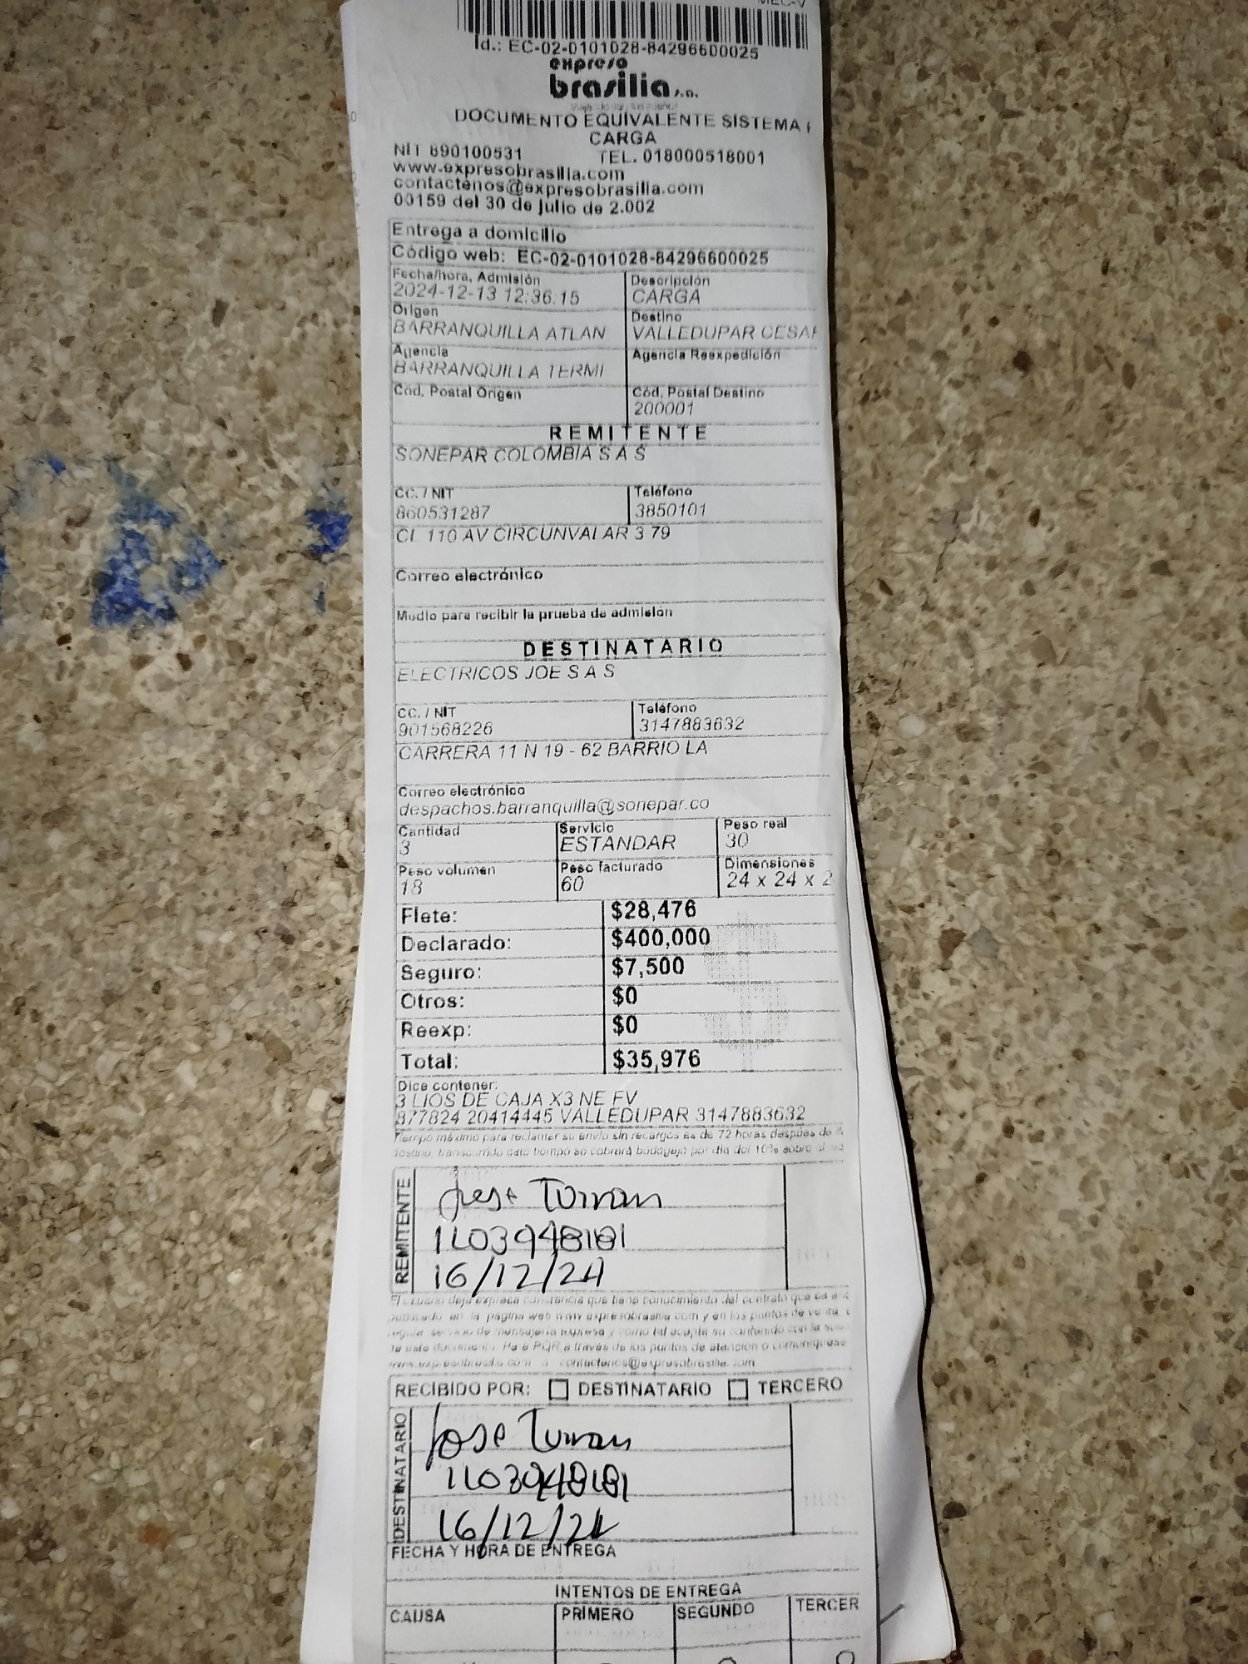 MEC-V
Id.: EC-02-0101028-84296600025
expreso
brasilia s.a.
DOCUMENTO EQUIVALENTE SISTEMA
CARGA
NIT 890100531 TEL. 018000518001
www.expresobrasilia.com
contactenos@expresobrasilia.com
00159 del 30 de julio de 2.002
Entrega a domicilio
Código web: EC-02-0101028-84296600025
Fecha/hora, Admisión Descripción
2024-12-13 12:36:15 CARGA
Origen Destino
BARRANQUILLA ATLAN VALLEDUPAR CESAR
Agencia Agencia Reexpedición
BARRANQUILLA TERMI
Cod. Postal Origen Cód. Postal Destino
200001
REMITENTE
SONEPAR COLOMBIA S A S
CC. / NIT Teléfono
860531287 3850101
CL 110 AV CIRCUNVALAR 3 79
Correo electrónico
Medio para recibir la prueba de admision
DESTINATARIO
ELECTRICOS JOE S A S
CC. / NIT Teléfono
901568226 3147883632
CARRERA 11 N 19 - 62 BARRIO LA
Correo electrónico
despachos.barranquilla@sonepar.co
Cantidad Servicio Peso real
3 ESTANDAR 30
Peso volumen Peso facturado Dimensiones
18 60 24 x 24 x 2
Flete: $28,476
Declarado: $400,000
Seguro: $7,500
Otros: $0
Reexp: $0
Total: $35,976
Dice contener:
3 LIOS DE CAJA X3 NE FV
877824 20414445 VALLEDUPAR 3147883632
Tiempo máximo para reclamar su envio sin recargos es de 72 horas después de
transcurrido este tiempo se cobrará bodegaje por día del 10% sobre
REMITENTE
Jose Turran
1103948181
16/12/24
El usuario deja expresa constancia que tiene conocimiento del contrato que
publicado en la página web www.expresobrasilia.com y en los puntos de venta
servicio de mensajería expresa y como tal acepta su contenido con la
este documento. Para PQR a través de los puntos de atención o comuniquese
www.expresobrasilia.com o contactenos@expresobrasilia.com
RECIBIDO POR: DESTINATARIO TERCERO
DESTINATARIO
Jose Turran
1103948181
16/12/24
FECHA Y HORA DE ENTREGA
INTENTOS DE ENTREGA
CAUSA PRIMERO SEGUNDO TERCER